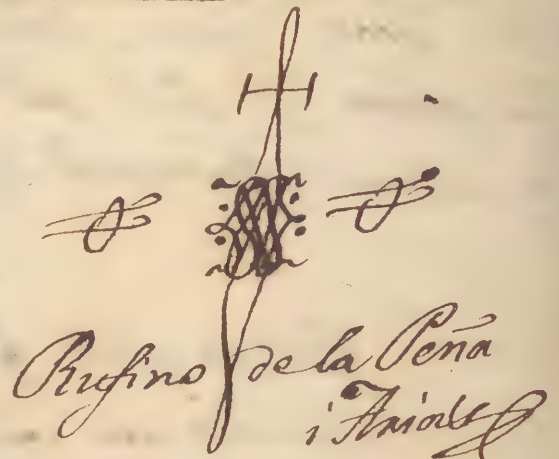 Rufino de la Peña
i Arias